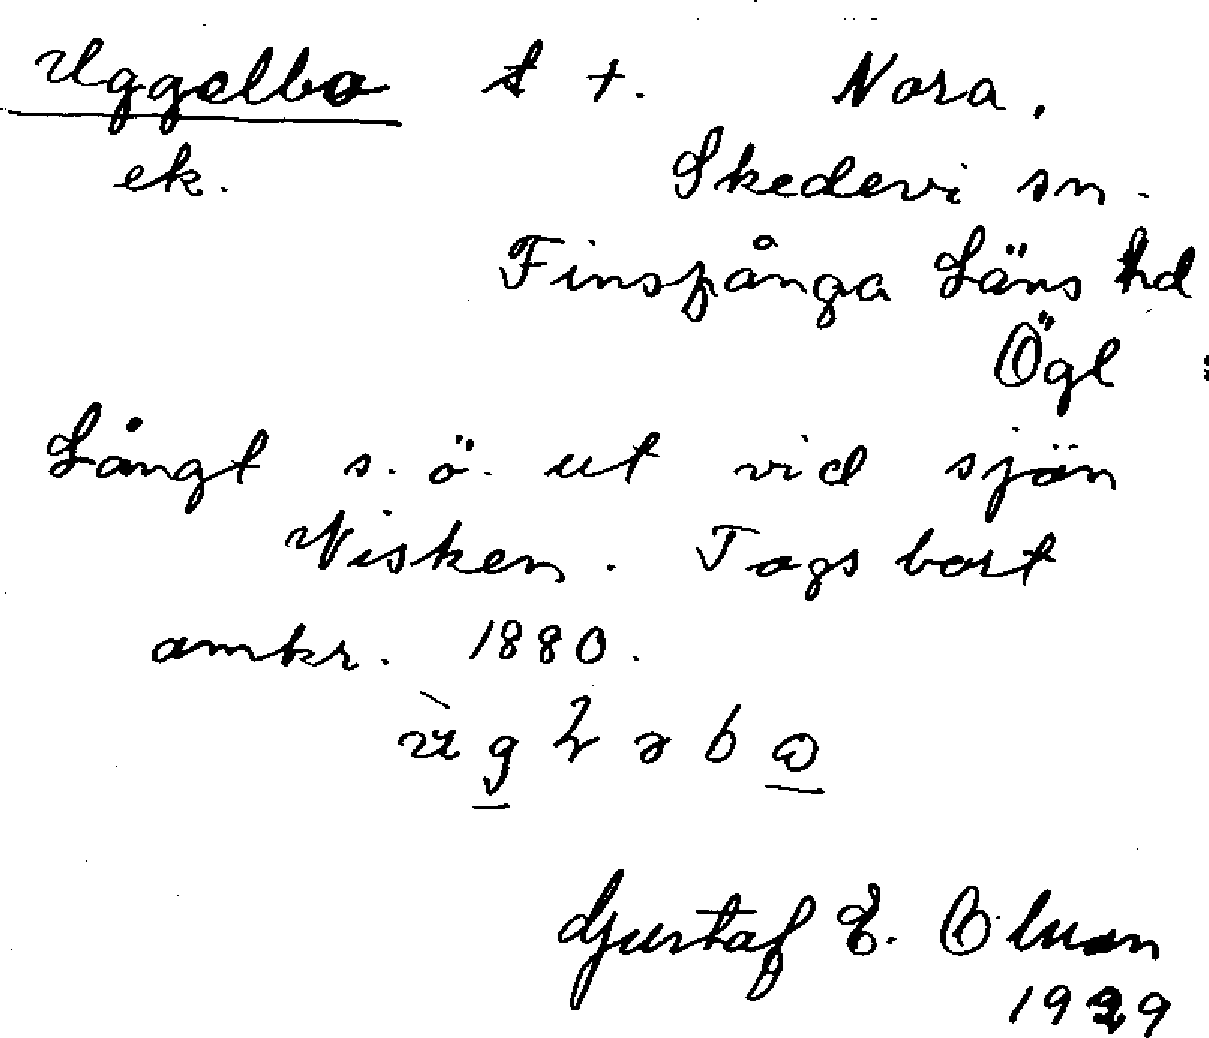 Uggelbo t +. Nora.
ek. Skedevi sn.
Finspånga Läns hd
Ögl
Långt s. ö. ut vid sjön
Nisken. Togs bort
omkr. 1880.
Gustaf E. Olsson
1929